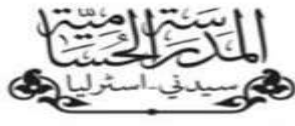 المدرسة الحسامية
سيدني - استراليا